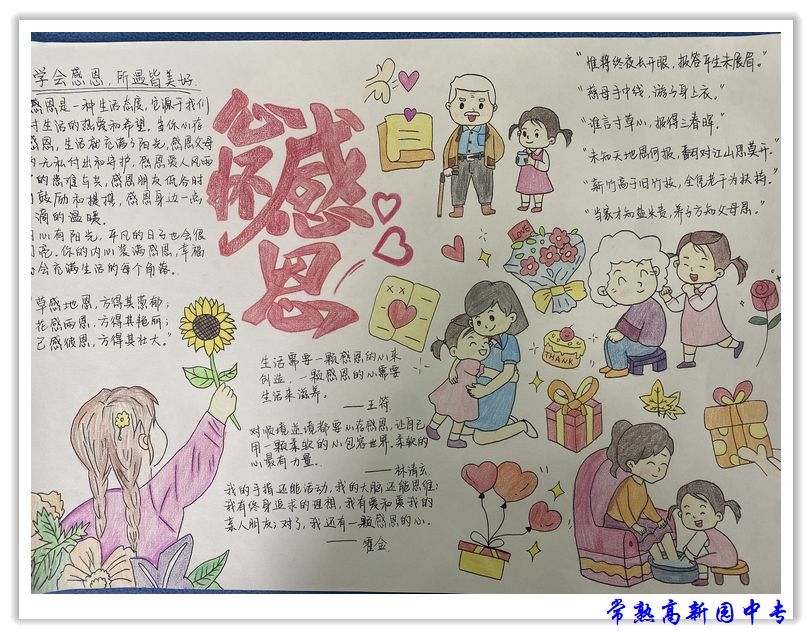 学会感恩，所遇皆美好.
感恩是一种生活态度，它源于我们
对生活的热爱和希望。当你心存
感恩，生活都充满了阳光，感恩父母
的无私付出和守护，感恩爱人风雨
的患难与共，感恩朋友低谷时
鼓励和提携，感恩身边一点
滴的温暖。
心有阳光，平凡的日子也会很
亮。你的内心装满感恩，幸福
会充满生活的每个角落。
草感地恩，方得其葱郁；
花感雨恩，方得其艳丽；
己感彼恩，方得其壮大。”
心怀感恩
生活需要一颗感恩的心来
创造，一颗感恩的心需要
生活来滋养。
——王符
对顺境逆境都要心存感恩，让自己
用一颗柔软的心包容世界。柔软的
心最有力量。
——林清玄
我的手指还能活动，我的大脑还能思维；
我有终身追求的理想，我有爱和爱我的
亲人朋友；对了，我还有一颗感恩的心.
——霍金
“惟将终夜长开眼，报答平生未展眉。”
“慈母手中线，游子身上衣。”
“谁言寸草心，报得三春晖。”
“未知天地恩何报，翻对江山思莫开。”
“新竹高于旧竹枝，全凭老干为扶持。”
“当家才知盐米贵，养子方知父母恩。”
LOVE
THANK
常熟高新园中专